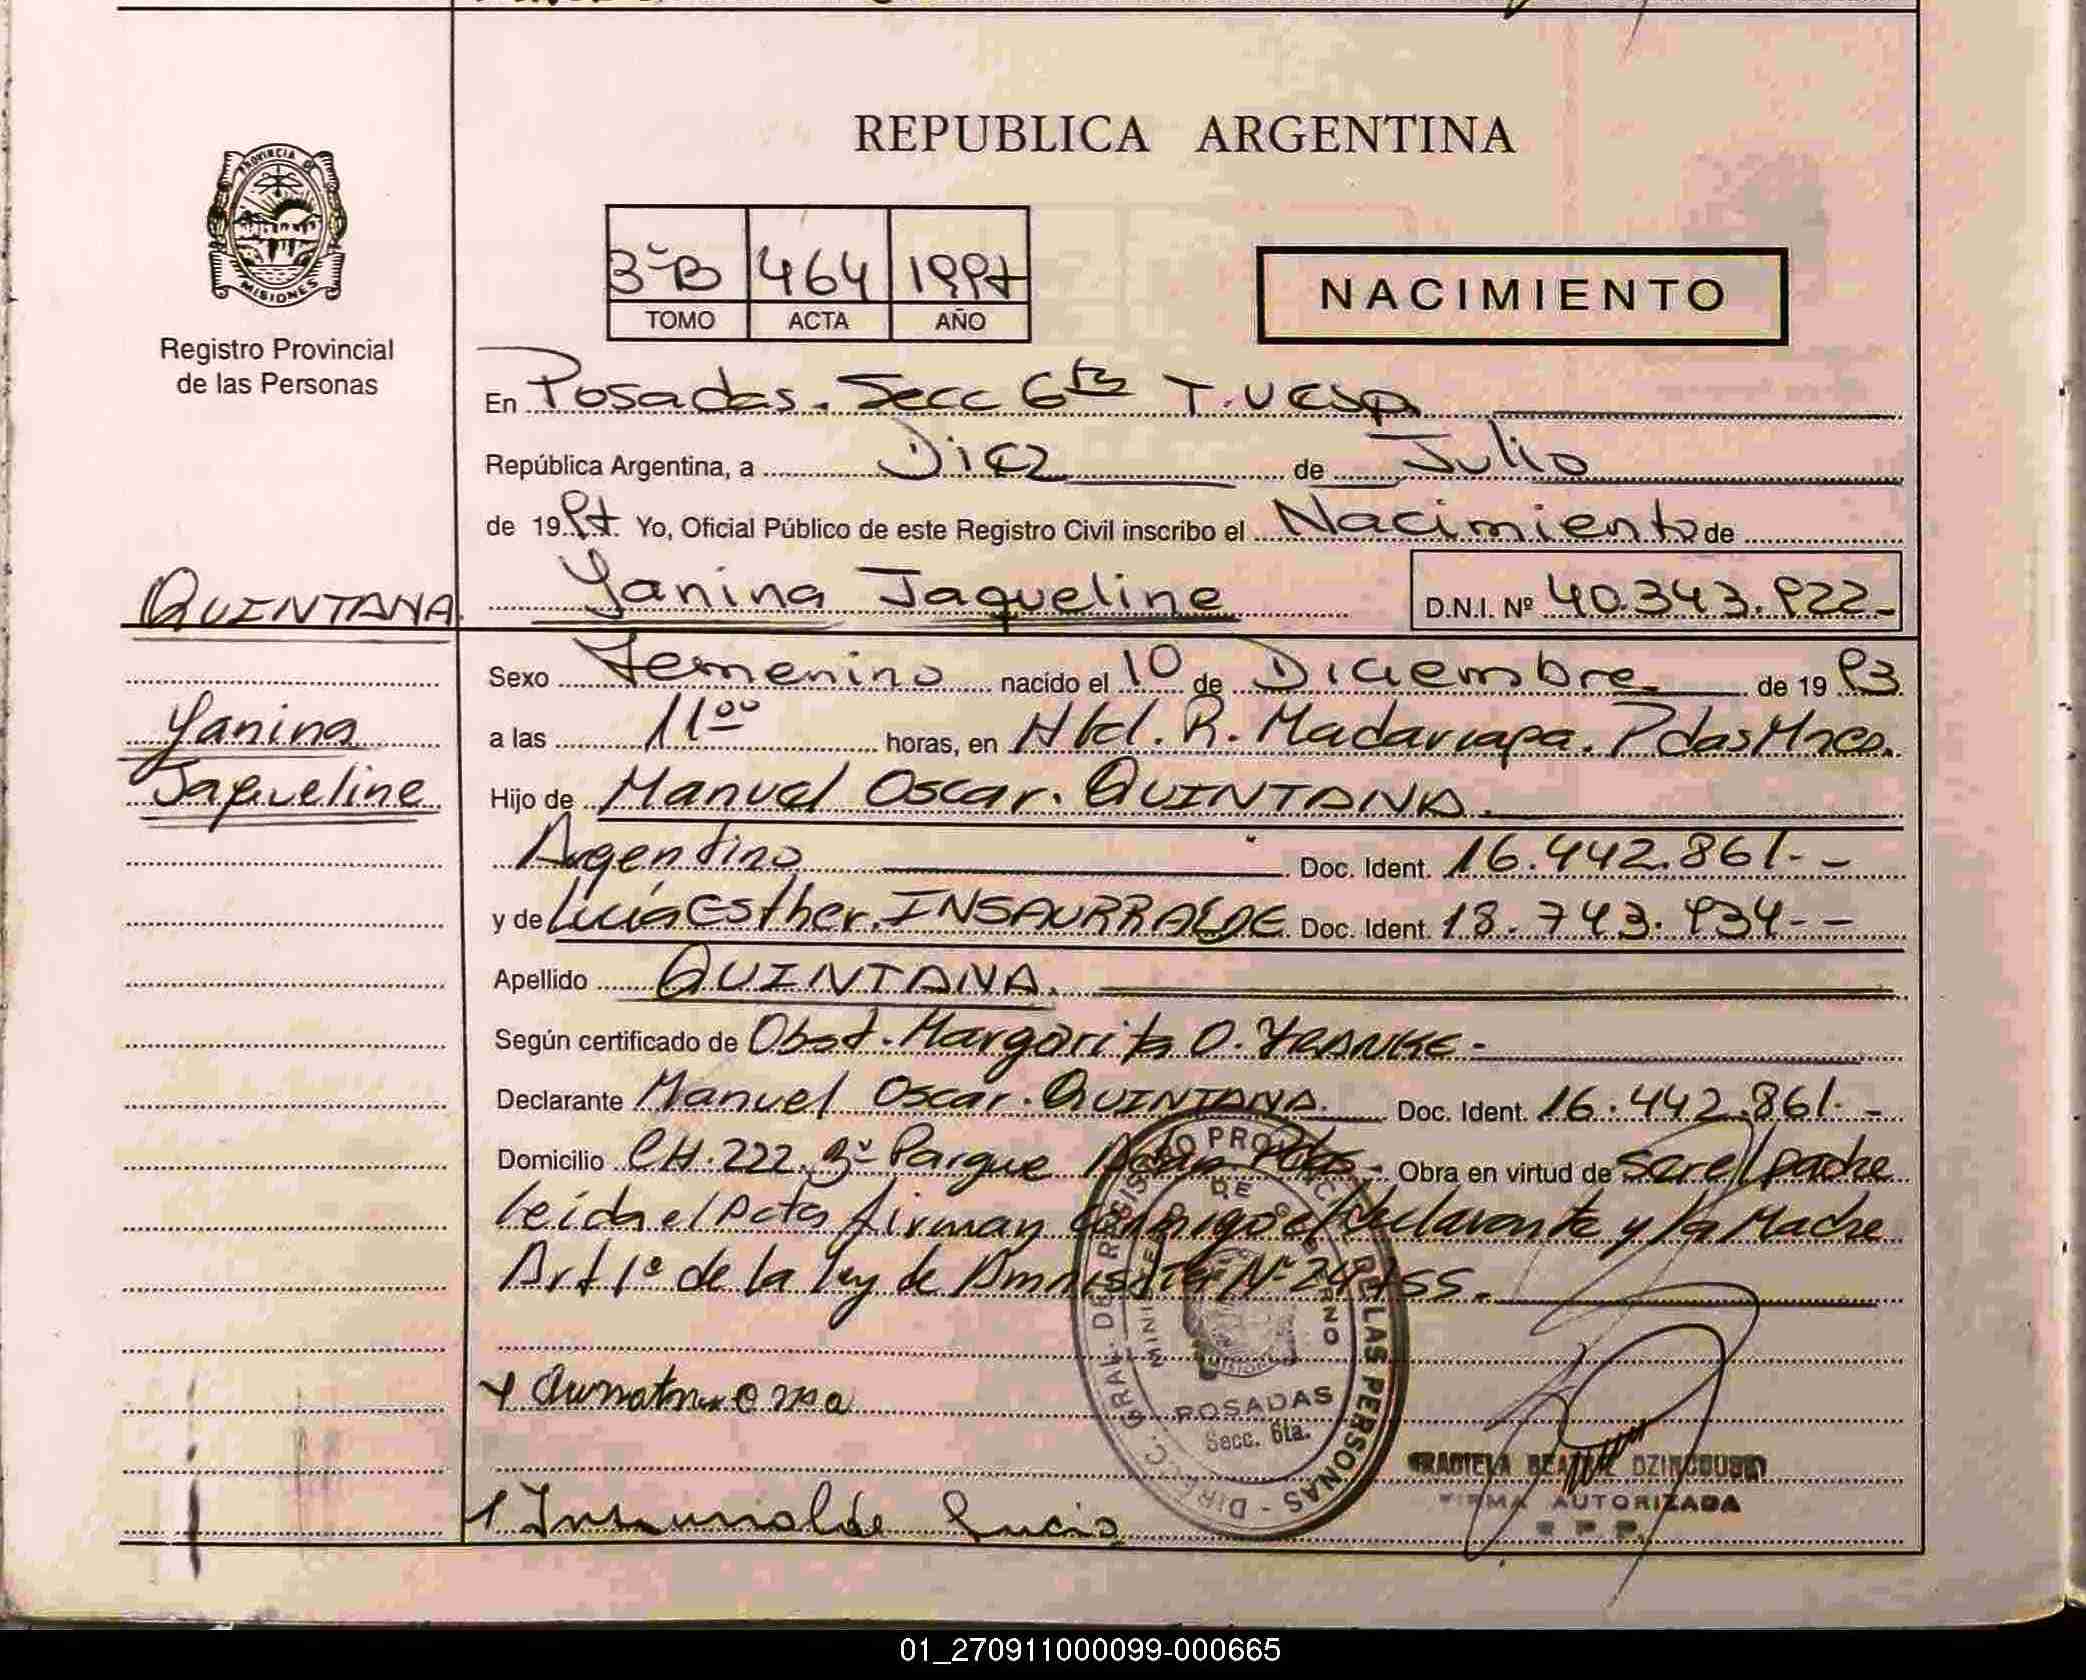 REPUBLICA ARGENTINA
PROVINCIA DE MISIONES
Registro Provincial
de las Personas
3ºB 464 1997
TOMO ACTA AÑO
NACIMIENTO
En Posadas. Secc 6ta T.
República Argentina, a Diez de Julio
de 1997 Yo, Oficial Público de este Registro Civil inscribo el Nacimiento de
QUINTANA Yanina Jaqueline D.N.I. Nº 40.343.922-
Sexo Femenino nacido el 10 de Diciembre de 1993
Yanina
a las 11ºº horas, en R. Madariaga. Pdas Mnes.
Jaqueline
Hijo de Manuel Oscar. QUINTANA.
Argentino Doc. Ident. 16.442.861.-
y de Lucía Esther. INSAURRALDE Doc. Ident. 18.743.934--
Apellido QUINTANA.
Según certificado de Obst. Margarita O.
Declarante Manuel Oscar. QUINTANA. Doc. Ident. 16.442.861.-
Domicilio CH. 222. 3º Parque Adan Pdas- Obra en virtud de ser el padre
leída el Acta firman conmigo el declarante y la Madre
Art 1º de la ley de Amnistia Nº 24.755.
Insaurralde Lucia
DIRECC. GRAL. DE REGISTRO PROVINCIAL DE LAS PERSONAS
MINISTERIO DE GOBIERNO
POSADAS
Secc. 6ta.
FIRMA AUTORIZADA
R P P.
01_270911000099-000665